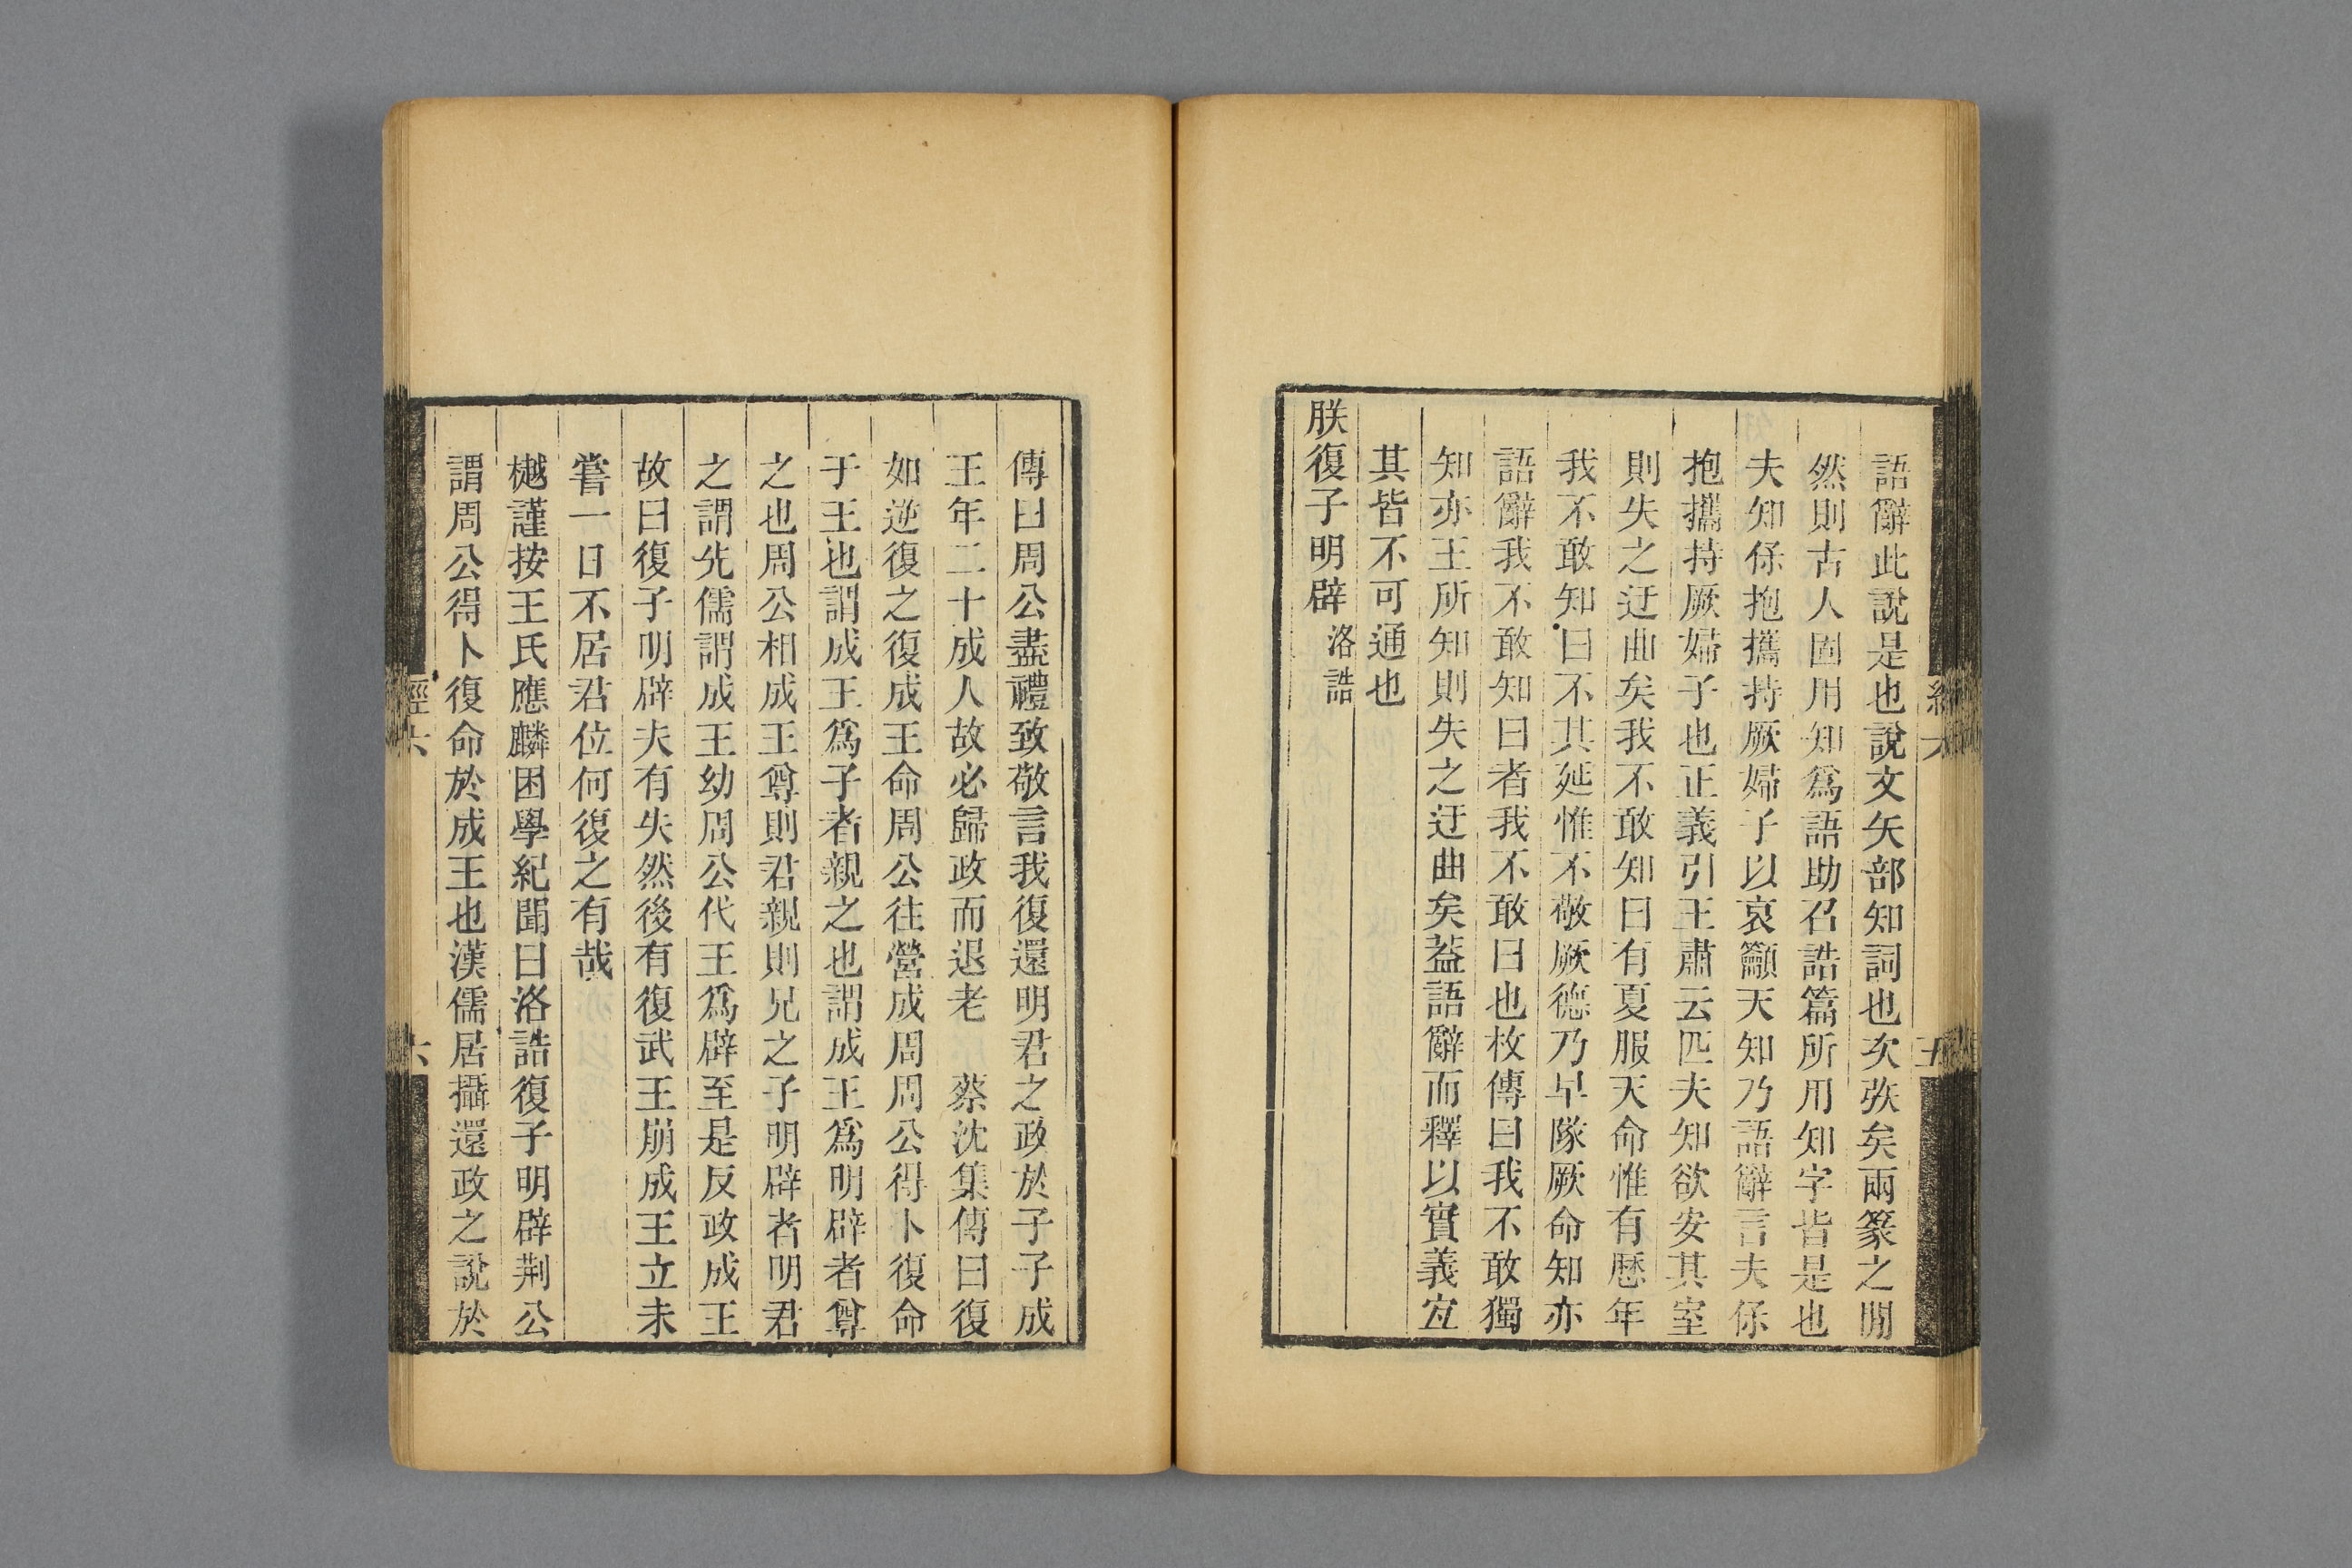 語辭此說是也說文矢部知詞也矣弞矣兩篆之閒
然則古人固用知爲語助召誥篇所用知字皆是也
夫知保抱攜持厥婦子以哀籲天知乃語辭言夫保
抱攜持厥婦子也正義引王肅云匹夫知欲安其室
則失之迂曲矣我不敢知曰有夏服天命惟有厯年
我不敢知曰不其延惟不敬厥德乃早隊厥命知亦
語辭我不敢知曰者我不敢曰也枚傳曰我不敢獨
知亦王所知則失之迂曲矣葢語辭而釋以實義宐
其皆不可通也
朕復子明辟 洛誥
傳曰周公盡禮致敬言我復還明君之政於子子成
王年二十成人故必歸政而退老 蔡沈集傳曰復
如逆復之復成王命周公往營成周周公得卜復命
于王也謂成王爲子者親之也謂成王爲明辟者尊
之也周公相成王尊則君親則兄之子明辟者明君
之謂先儒謂成王幼周公代王爲辟至是反政成王
故曰復子明辟夫有失然後有復武王崩成王立未
嘗一日不居君位何復之有哉
樾謹按王氏應麟困學紀聞曰洛誥復子明辟荆公
謂周公得卜復命於成王也漢儒居攝還政之說於
經六
六